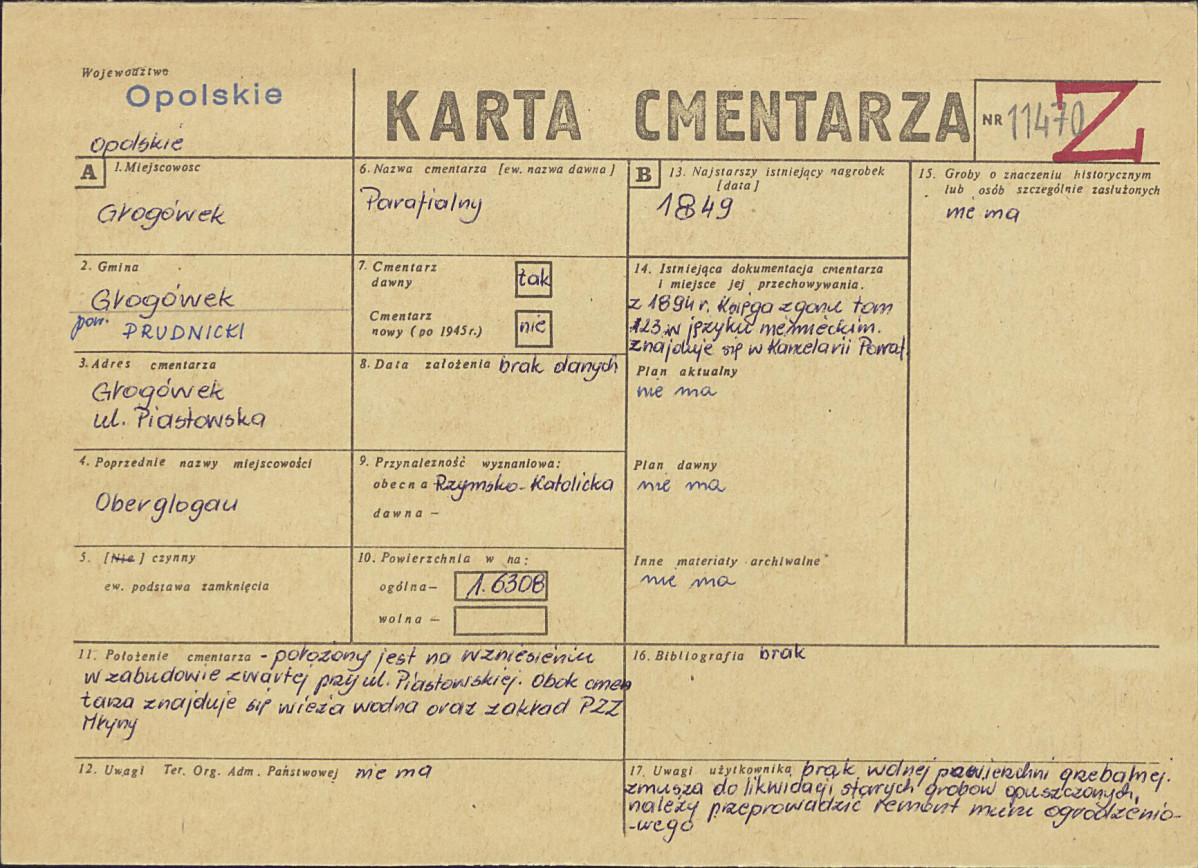 Województwo
Opolskie
opolskie
KARTA CMENTARZA
NR 11470
Z
A
1. Miejscowosc
Głogówek
2. Gmina
Głogówek
pow. PRUDNICKI
3. Adres cmentarza
Głogówek
ul. Piastowska
4. Poprzednie nazwy miejscowości
Oberglogau
5. [Nie] czynny
ew. podstawa zamknięcia
6. Nazwa cmentarza [ew. nazwa dawna]
Parafialny
7. Cmentarz
dawny
tak
Cmentarz
nowy (po 1945 r.)
nie
8. Data założenia brak danych
9. Przynalezność wyznaniowa:
obecna Rzymsko-Katolicka
dawna –
10. Powierzchnia w ha:
ogólna – 1.6308
wolna –
11. Położenie cmentarza - położony jest na wzniesieniu
w zabudowie zwartej przy ul. Piastowskiej. Obok cmen
tarza znajduje się wieża wodna oraz zakład PZZ
Młyny
12. Uwagi Ter. Org. Adm. Państwowej nie ma
B
13. Najstarszy istniejący nagrobek
[data]
1849
14. Istniejąca dokumentacja cmentarza
i miejsce jej przechowywania.
z 1894 r. Księga zgonu tom
123 w języku niemieckim.
znajduje się w Kancelarii Parraf.
Plan aktualny
nie ma
Plan dawny
nie ma
Inne materiały archiwalne
nie ma
15. Groby o znaczeniu historycznym
lub osób szczególnie zasłużonych
nie ma
16. Bibliografia brak
17. Uwagi użytkownika brak wolnej powierzchni grzebalnej.
zmusza do likwidacji starych grobów opuszczonych,
należy przeprowadzić remont muru ogrodzenio-
-wego